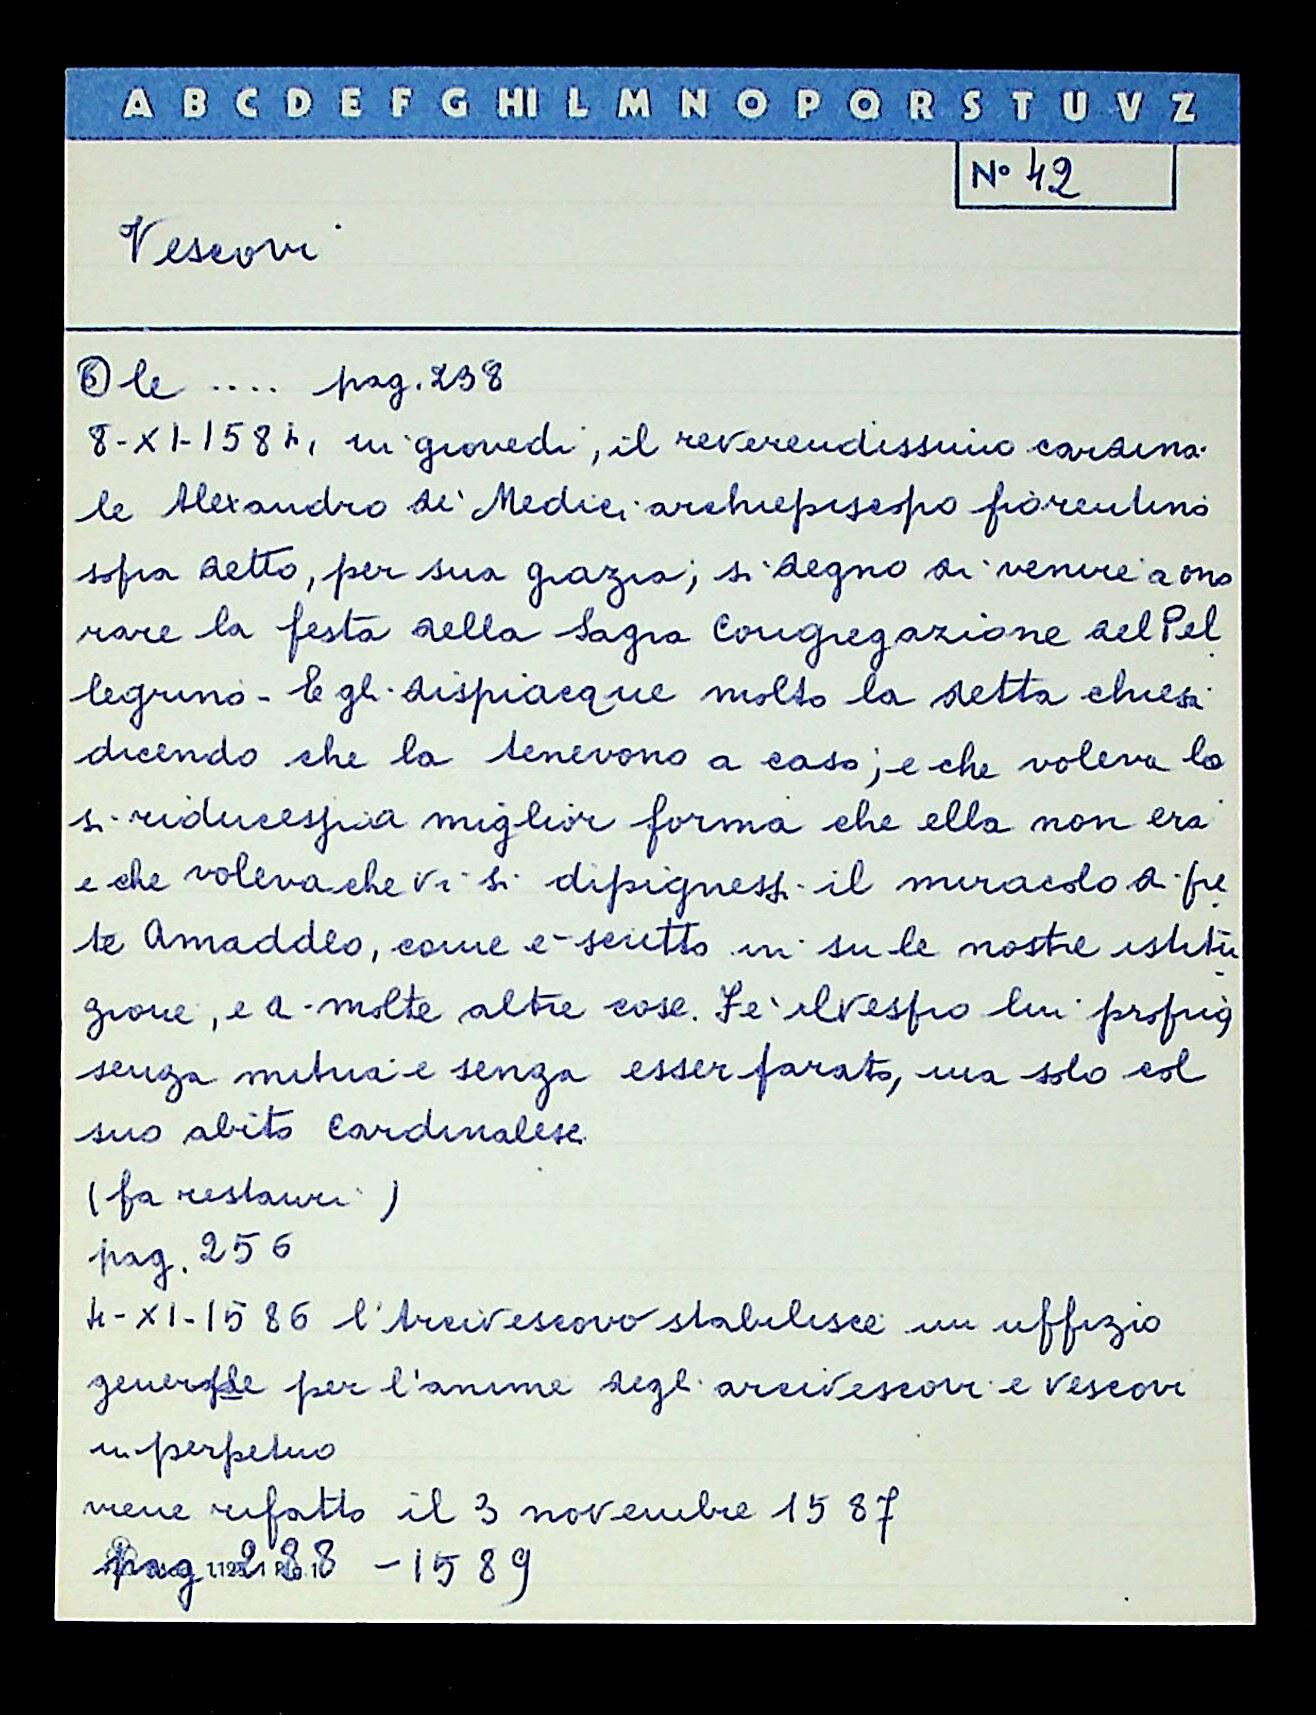 A B C D E F G HI L M N O P Q R S T U V Z
N° 42
Vescovi
⑥ le .... pag. 238
8-XI-1584, in giovedi, il reverendissimo cardina
le Alexandro de' Medici archiepiscopo fiorentino
sopra detto, per sua grazia; si degno di venire a ono
rare la festa della Sagra Congregazione del Pel
legrino - E gli dispiacque molto la detta chiesa
dicendo che la tenevono a caso; e che voleva la
si riducessi a miglior forma che ella non era
e che voleva che vi si dipignessi il miracolo di pre
te Amaddeo, come è scritto in su le nostre istitu
zione, e di molte altre cose. Fe' il vespro lui proprio
senza mitria e senza esser parato, ma solo col
suo abito Cardinalesc
(fa restauri)
pag. 256
4-XI-1586 l'Arcivescovo stabilisce un uffizio
generale per l'anime degli arcivescovi e vescovi
in perpetuo
viene rifatto il 3 novembre 1587
pag 288 - 1589